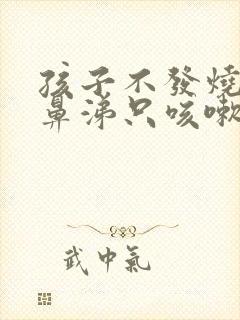 孩子不發燒
鼻涕只咳嗽
武中氣